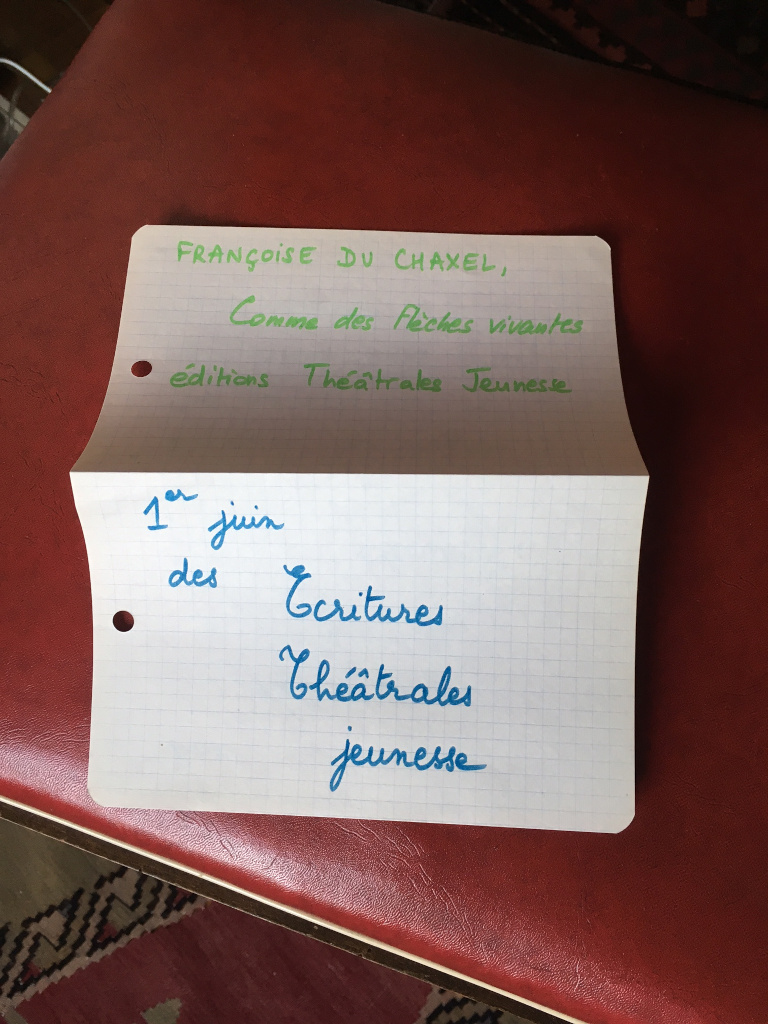 FRANÇOISE DU CHAXEL,
Comme des flèches vivantes
éditions Théâtrales Jeunesse
1er juin
des Ecritures
Théâtrales
jeunesse